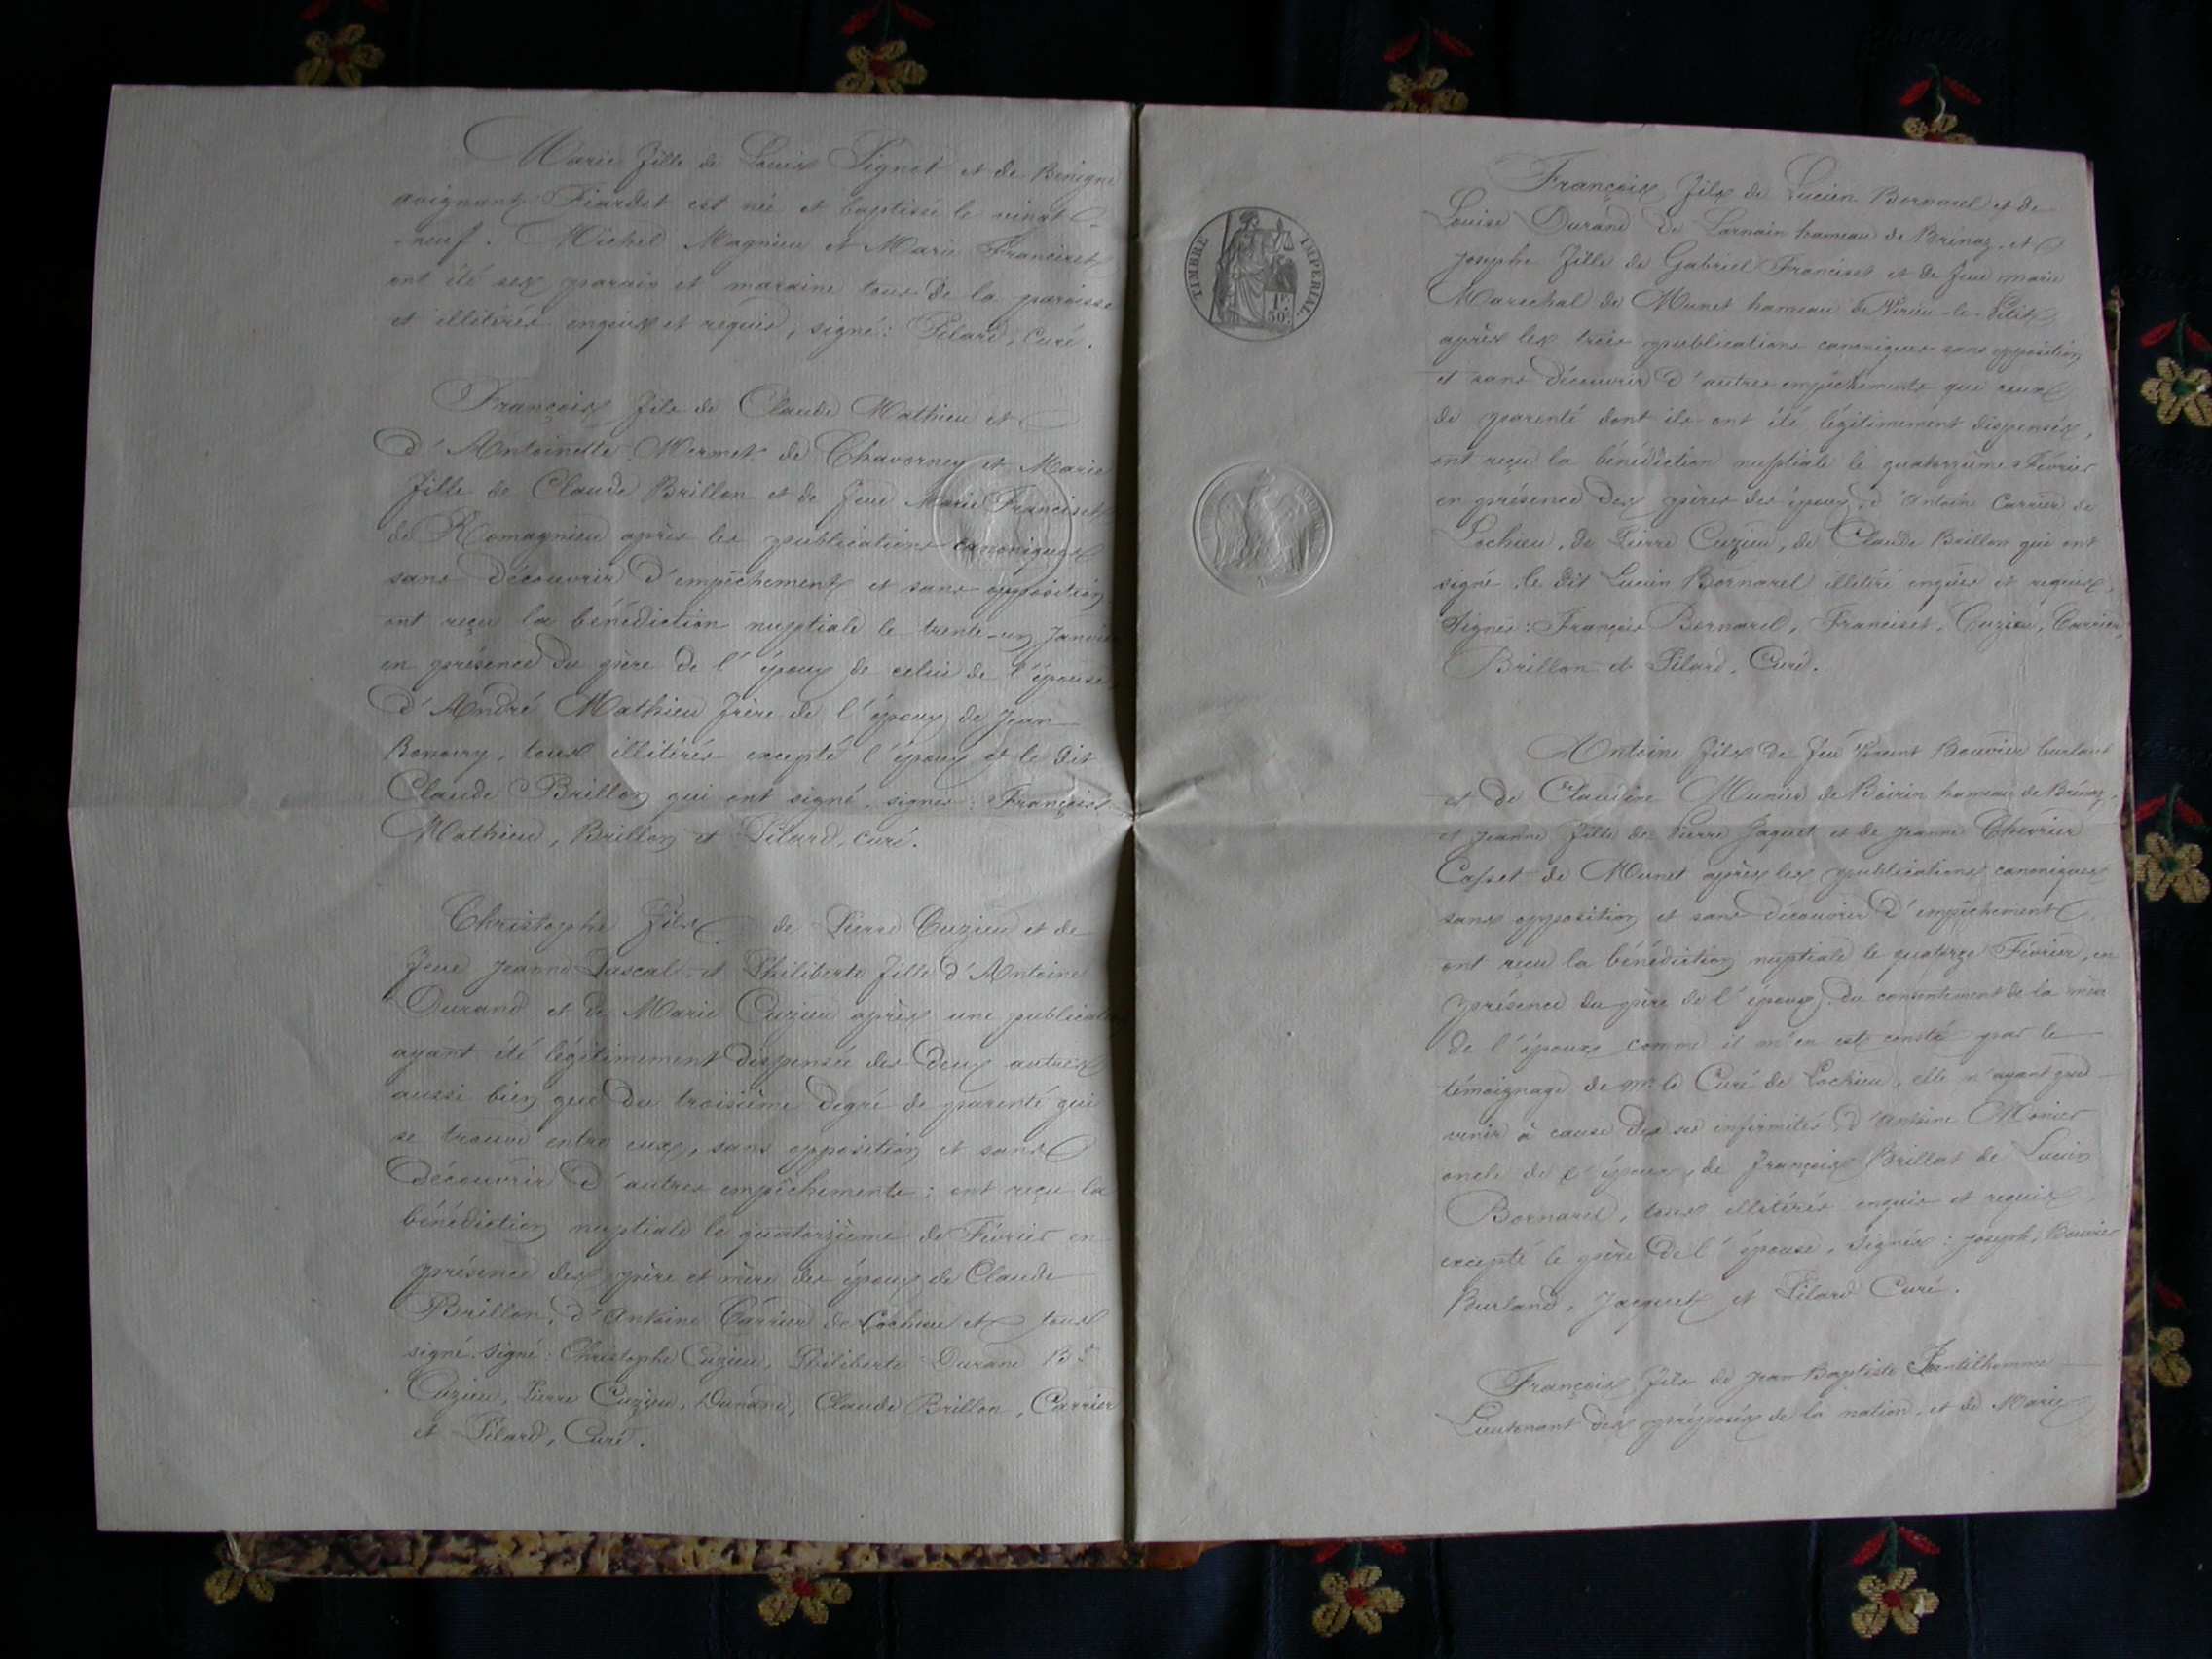 Marie fille de Louis Pignet et de Benigne
avignant Fiardet est née et baptisée le vingt
-neuf. Michel Magnieu et Marie Franciset
ont été ses parain et maraine tous de la paroisse
et illitérés enquis et requis, signé: Pilard, curé.
François fils de Claude Mathieu et
d'Antoinette Mermet de Chavorney et Marie
fille de Claude Brillon et de feue Marie Franciset
de Romagnieu après les publications canoniques
sans découvrir d'empêchement et sans opposition
ont reçu la bénédiction nuptiale le trente-un Janvier
en présence du père de l'époux de celui de l'épouse,
d'André Mathieu frère de l'époux de Jean
tous illitérés excepté l'époux et le dit
Claude Brillon qui ont signé. signés: François
Mathieu, Brillon et Pilard, curé.
Christophe fils de Pierre Cuzieu et de
feue Jeanne Pascal et Philiberte fille d'Antoine
Durand et de Marie Cuzieu après une publication
ayant été légitimement dispensée des deux autres
aussi bien que du troisième degré de parenté qui
se trouve entre eux, sans opposition et sans
découvrir d'autres empêchements; ont reçu la
bénédiction nuptiale le quatorzième de Février en
présence des père et mère des époux de Claude
Brillon, d'Antoine Carrier de Lochieu et tous
signé. Signé: Christophe Cuzieu, Philiberte Durand Bd
Cuzieu, Pierre Cuzieu, Durand, Claude Brillon, Carrier
et Pilard, Curé.
TIMBRE IMPERIAL
1F 50C
François fils de Lucien Bornarel et de
Louise Durand de Larnain hameau de Brénaz, et
Josephe fille de Gabriel Franciset et de feue marie
Marechal de Munet hameau de Virieu-le-Petit
après les trois publications canoniques sans opposition
et sans découvrir d'autres empêchements que ceux
de parenté dont ils ont été légitimement dispensés,
ont reçu la bénédiction nuptiale le quatorzième Février
en présence des pères des époux, d'Antoine Carrier de
Lochieu, de Pierre Cuzieu, de Claude Brillon qui ont
signé, le dit Lucien Bornarel illitéré enquis et requis,
Signés: François Bornarel, Franciset, Cuzieu, Carrier,
Brillon et Pilard, Curé.
Antoine fils de feu Vincent Bouvier burland
et de Claudine Munier de Boirin hameau de Brénaz,
et Jeanne fille de Pierre Jaquet et de Jeanne Chevrier
Casset de Munet après les publications canoniques
sans opposition et sans découvrir d'empêchement
ont reçu la bénédiction nuptiale le quatorze Février, en
présence du père de l'épouse, du consentement de la mère
de l'époux comme il m'en est consté par le
témoignage de Mr le Curé de Lochieu, elle n'ayant pu
venir à cause de ses infirmités, d'Antoine Monier
oncle de l'époux, de François Brillat de Lucien
Bornarel, tous illitérés enquis et requis
excepté le père de l'épouse. Signés: Joseph, Bouvier
Burland, Jacquet et Pilard Curé.
François fils de Jean Baptiste Jantilhomme
Lieutenant des préposés de la nation, et de Marie